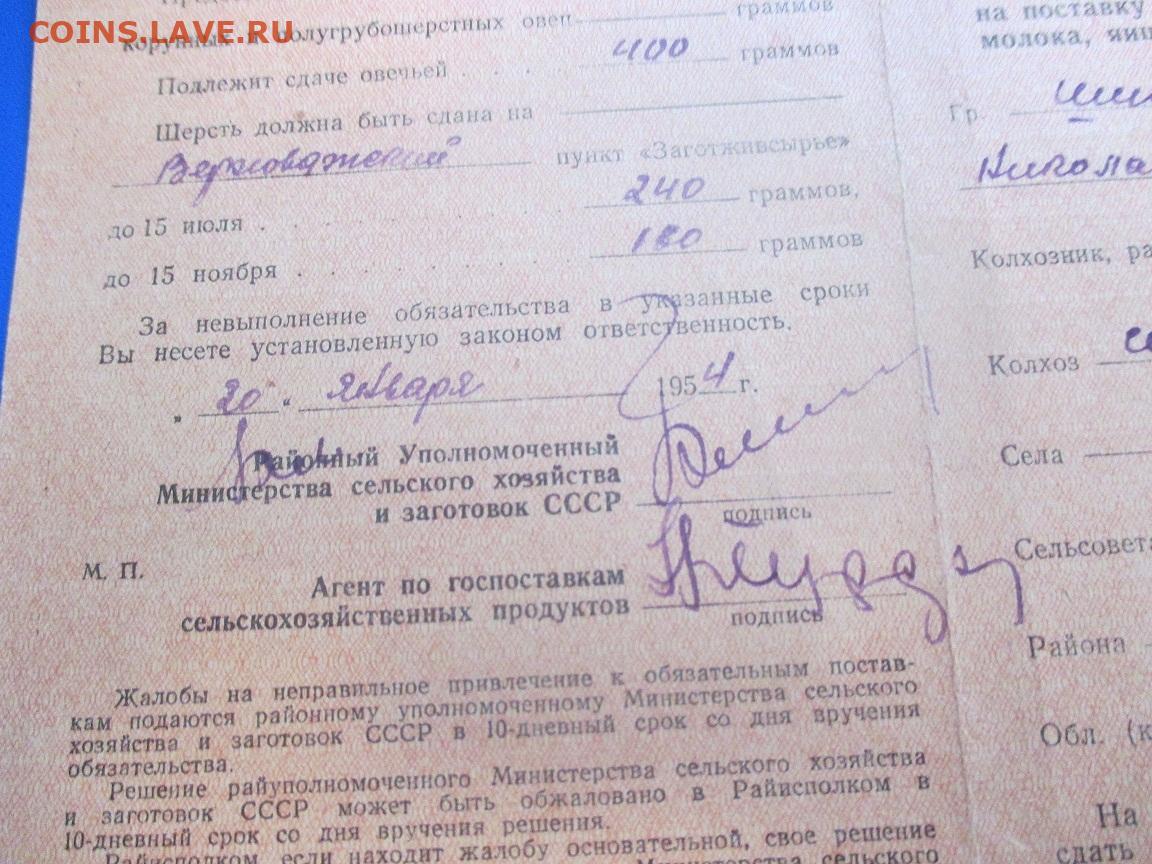 COINS.LAVE.RU
полугрубошерстных овец граммов
Подлежит сдаче овечьей . . . 400 граммов
Шерсть должна быть сдана на
Верховажский пункт «Заготживсырье»
до 15 июля . . . 240 граммов,
до 15 ноября . . . . . . 160 граммов
За невыполнение обязательства в указанные сроки
Вы несете установленную законом ответственность.
„ 20 “ января 1954 г.
Районный Уполномоченный
Министерства сельского хозяйства
и заготовок СССР
подпись
М. П.
Агент по госпоставкам
сельскохозяйственных продуктов
подпись
Жалобы на неправильное привлечение к обязательным постав-
кам подаются районному уполномоченному Министерства сельского
хозяйства и заготовок СССР в 10-дневный срок со дня вручения
обязательства.
Решение райуполномоченного Министерства сельского хозяйства
и заготовок СССР может быть обжаловано в Райисполком в
10-дневный срок со дня вручения решения.
Райисполком, если находит жалобу основательной, свое решение
Министерства сельского
на поставку
молока, яиц
Гр.
Никола
Колхозник, ра
Колхоз
Села
Сельсовета
Района
Обл. (к
На
сдать